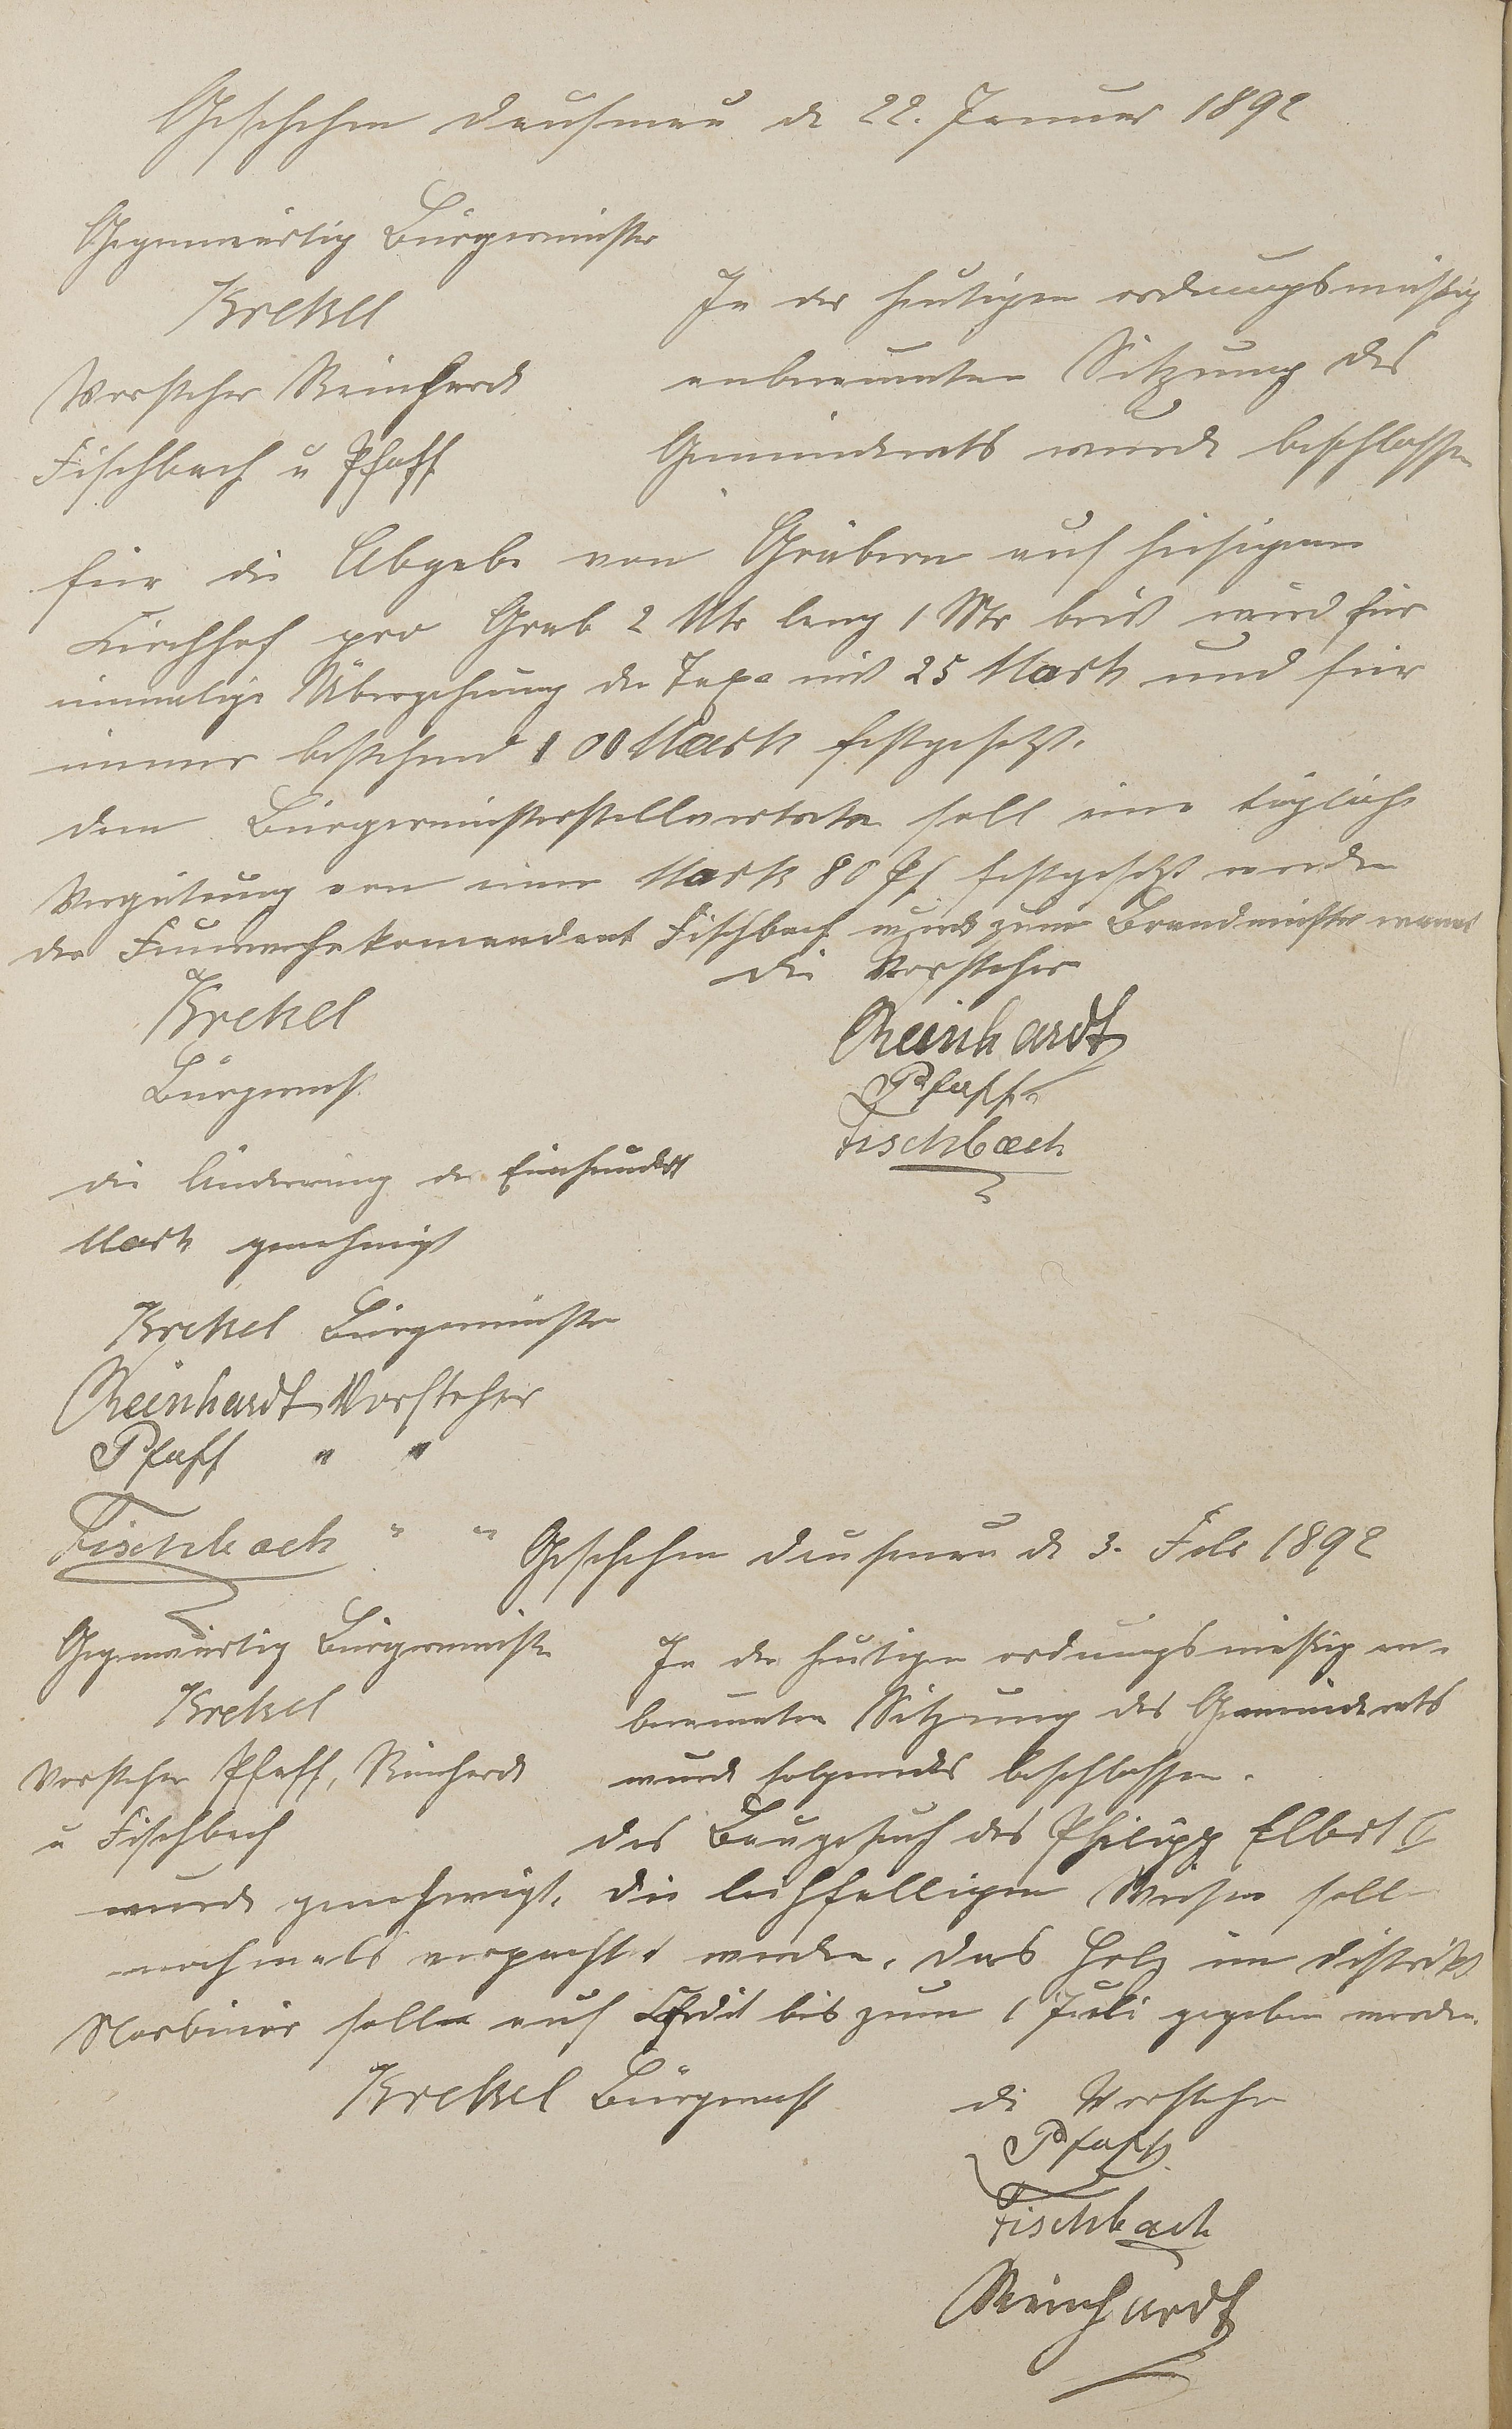 Geschehen Dausenau d 22. Januar 1892
Gegenwärtig Bürgermeister
Krekel
Vorsteher Reinhardt
Fischbach u Pfaff
In der heutigen ordnungsmäßig
anberaumten Sitzung des
Gemeinderats wurde beschlossen
für die Abgabe von Gräbern auf hiesigem
Kirchhof pro Grab 2 Mtr lang 1 Mtr breit wird für
einmalige Übergehung die Taxe mit 25 Mark und für
immer bestehend 100 Mark festgesetzt.
Dem Bürgermeisterstellvertreter soll eine tägliche
Vergütung von einer Mark 80 Pf festgesetzt werden
Der Feuerwehrkomandant Fischbach wird zum Brandmeister ernannt
Krekel
Bürgermst
Die Vorsteher
Reinhardt
Pfaff
Fischbach
Die Änderung der Einhundert
Mark genehmigt
Krekel Bürgermeister
Reinhardt Vorsteher
Pfaff " "
Fischbach " "
Geschehen Dausenau d 3. Febr 1892
Gegenwärtig Bürgermeister
Krekel
Vorsteher Pfaff, Reinhardt
u Fischbach
In der heutigen ordnungsmäßig an-
beraumten Sitzung des Gemeinderats
wurde folgendes beschlossen.
Das Baugesuch des Philipp Elbert II
wurde genehmigt. Die leihfälligen Wiesen soll
nochmals verpachtet werden. Das Holz im Distrikt
sollen auf Credit bis zum 1 Juli gegeben werden.
Krekel Bürgermst
Die Vorsteher
Pfaff
Fischbach
Reinhardt